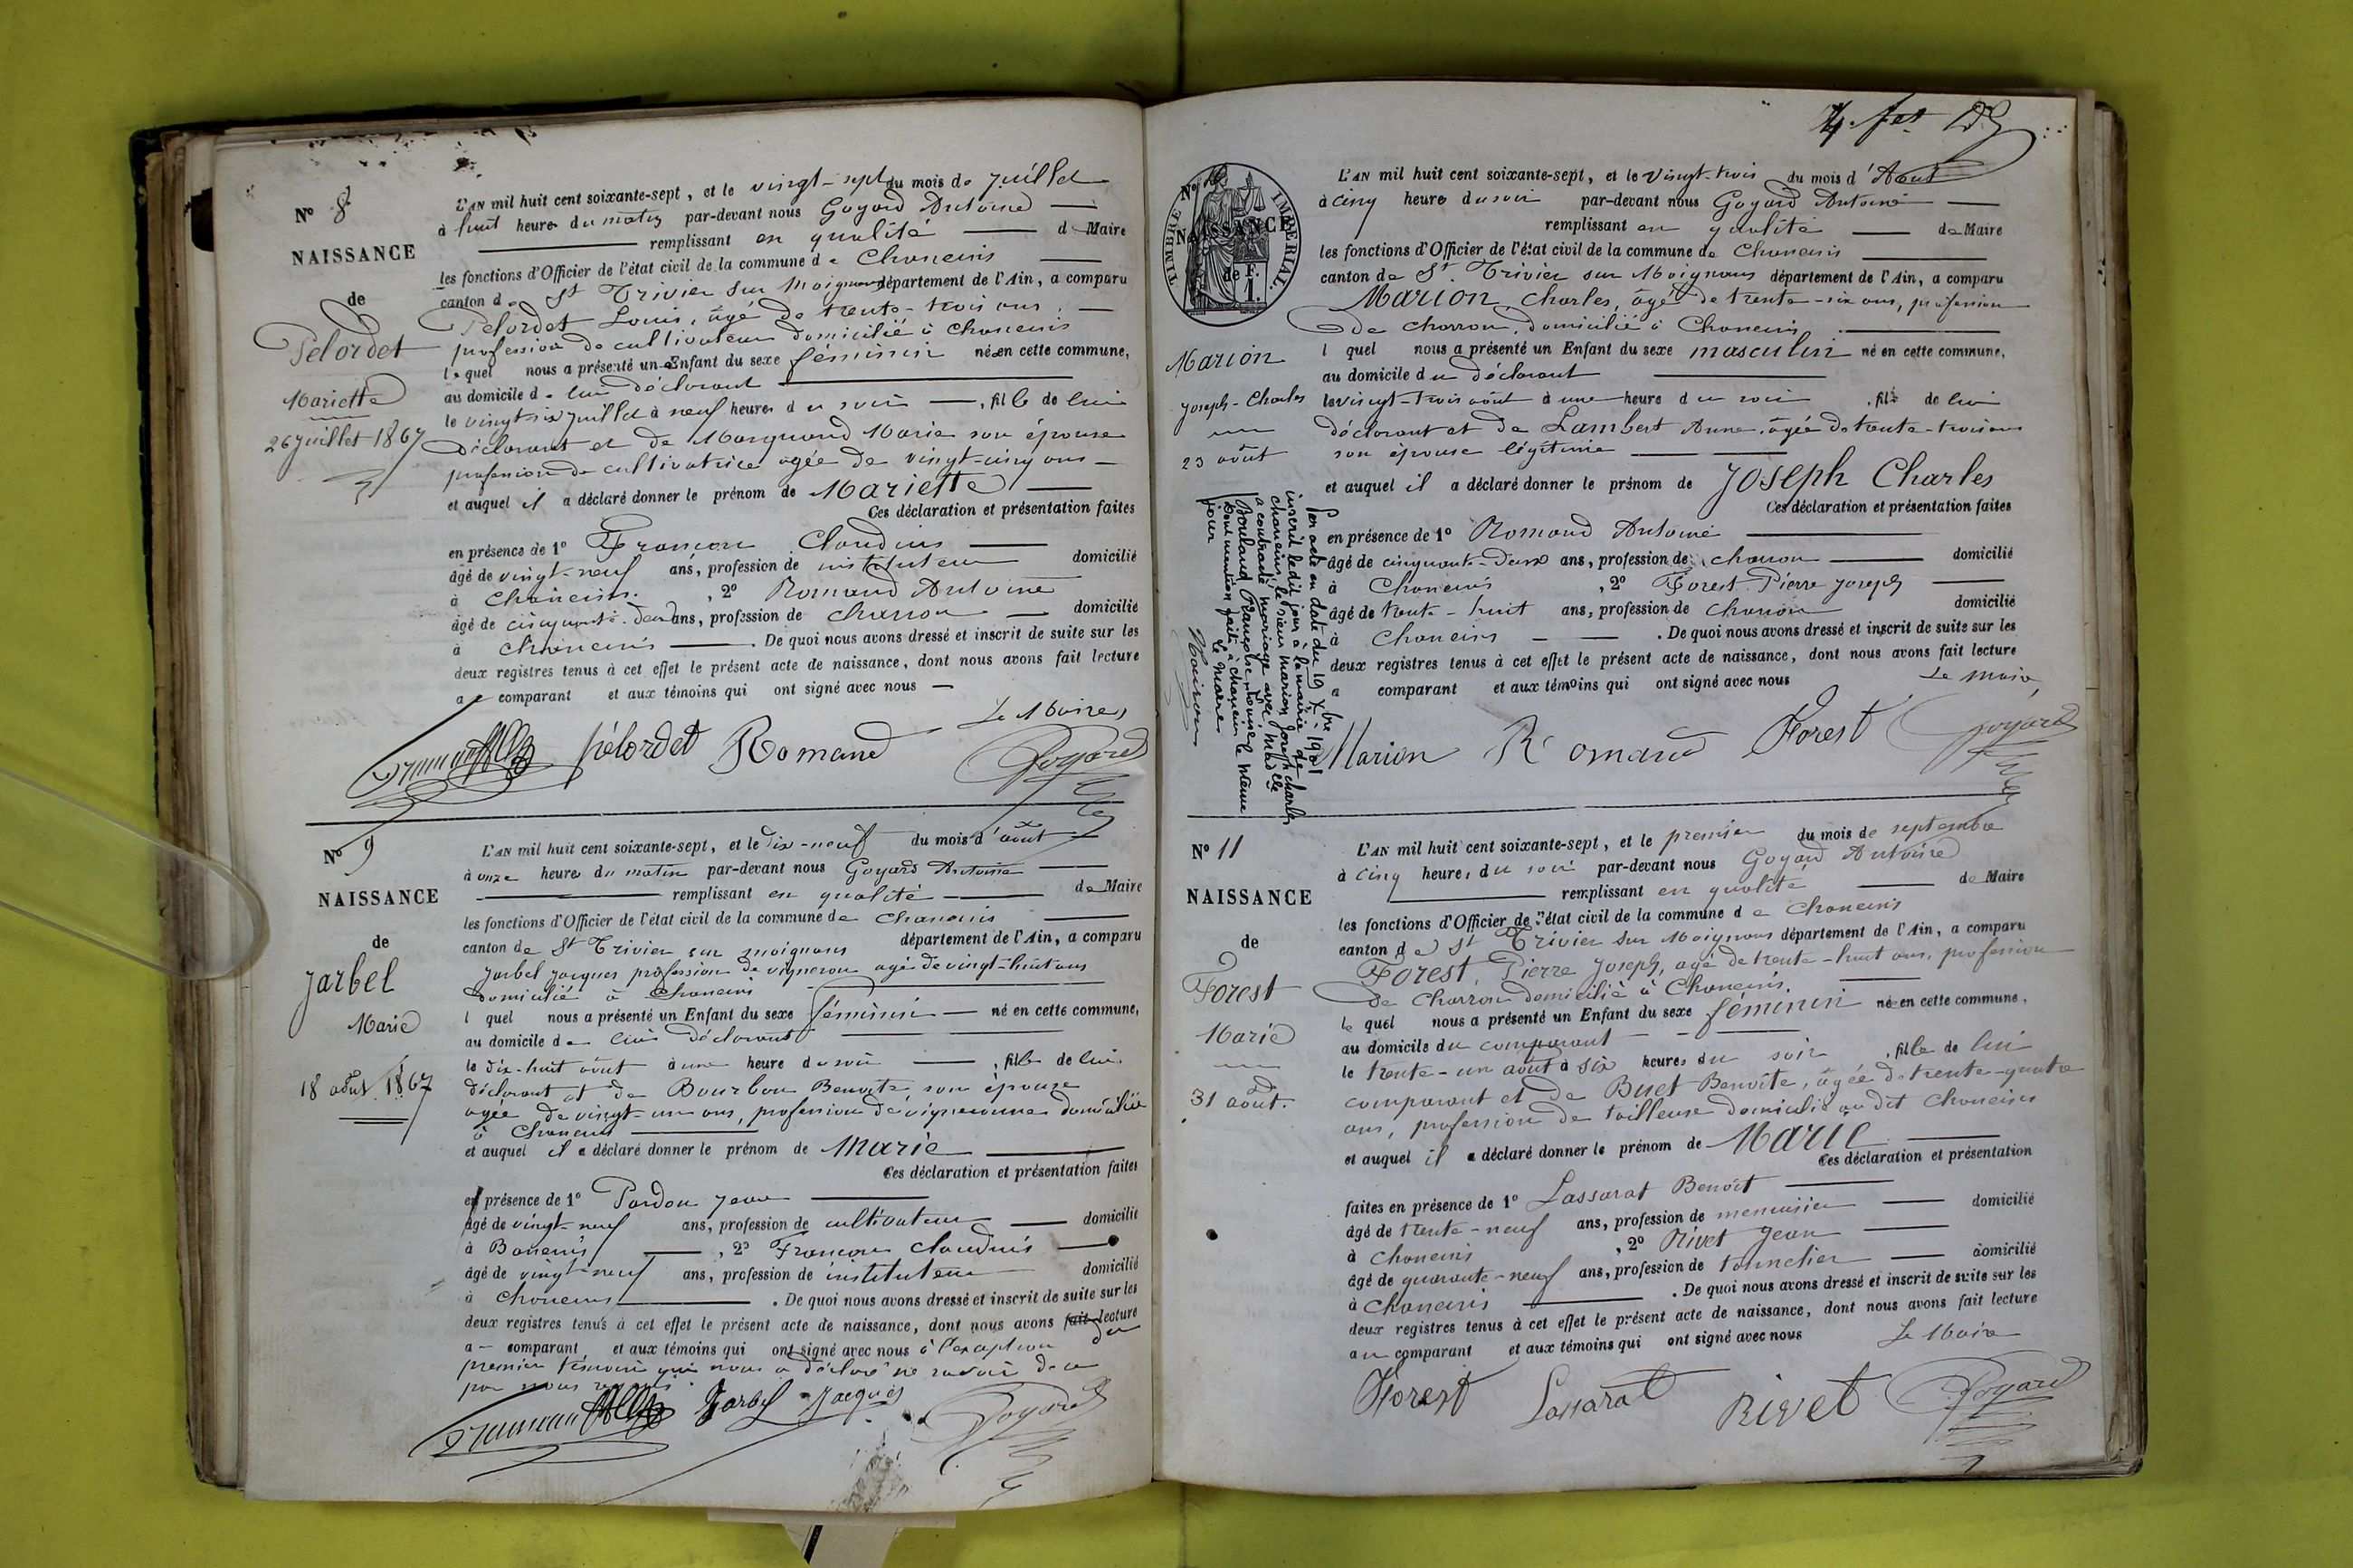 N° 8
NAISSANCE
de
Pelordet
Mariette
26 juillet 1867
L'AN mil huit cent soixante-sept, et le vingt-sept du mois de juillet
à huit heures du matin par-devant nous Goyard Antoine
remplissant en qualité de Maire
les fonctions d'Officier de l'état civil de la commune de Chaneins
canton de St Trivier sur Moignans département de l'Ain, a comparu
Pelordet Louis, âgé de trente-trois ans,
profession de cultivateur domicilié à Chaneins
lequel nous a présenté un Enfant du sexe féminin née en cette commune,
au domicile de lui déclarant
le vingt six juillet à neuf heures du soir, fille de lui
déclarant et de Marguand Marie son épouse
profession de cultivatrice agée de vingt-cinq ans
et auquel il a déclaré donner le prénom de Mariette
Ces déclaration et présentation faites
en présence de 1° Françon Claudius
âgé de vingt-neuf ans, profession de instituteur domicilié
à Chaneins, 2° Romand Antoine
âgé de cinquante-deux ans, profession de charron domicilié
à Chaneins. De quoi nous avons dressé et inscrit de suite sur les
deux registres tenus à cet effet le présent acte de naissance, dont nous avons fait lecture
a comparant et aux témoins qui ont signé avec nous
Le Maire
Pélordet Romand Goyard
N° 9
NAISSANCE
de
Jarbel
Marie
18 août 1867
L'AN mil huit cent soixante-sept, et le dix-neuf du mois d'août
à onze heures du matin par-devant nous Goyard Antoine
remplissant en qualité de Maire
les fonctions d'Officier de l'état civil de la commune de Chaneins
canton de St Trivier sur moignans département de l'Ain, a comparu
Jarbel Jacques profession de vigneron agé de vingt-huit ans
domicilié à Chaneins
l quel nous a présenté un Enfant du sexe féminin né en cette commune,
au domicile de lui déclarant
le dix-huit août à une heure du soir, fille de lui
déclarant et de Bourbon Benoite, son épouse
agée de vingt-un ans, profession de vigneronne domiciliée
à Chaneins
et auquel il a déclaré donner le prénom de Marie
Ces déclaration et présentation faites
en présence de 1° Pardon Jean
âgé de vingt-neuf ans, profession de cultivateur domicilié
à Baneins, 2° Françon Claudius
âgé de vingt-neuf ans, profession de instituteur domicilié
à Chaneins. De quoi nous avons dressé et inscrit de suite sur les
deux registres tenus à cet effet le présent acte de naissance, dont nous avons fait lecture
a comparant et aux témoins qui ont signé avec nous à l'exception du
premier témoin qui nous a déclaré ne savoir de ce
par nous requis
Jarbel Jacques Goyard
4.
TIMBRE IMPERIAL.
N° 10
NAISSANCE
de F.
1.
Marion
Joseph-Charles
23 août
L'AN mil huit cent soixante-sept, et le vingt-trois du mois d'Aout
à cinq heure du soir par-devant nous Goyard Antoine
remplissant en qualité de Maire
les fonctions d'Officier de l'état civil de la commune de Chaneins
canton de St Trivier sur Moignans département de l'Ain, a comparu
Marion, Charles, âgé de trente-six ans, profession
de charron, domicilié à Chaneins
l quel nous a présenté un Enfant du sexe masculin né en cette commune,
au domicile du déclarant
le vingt-trois août à une heure du soir, fils de lui
déclarant et de Lambert Anne, âgée de trente-trois ans
son épouse légitime
et auquel il a déclaré donner le prénom de Joseph Charles
Ces déclaration et présentation faites
en présence de 1° Romand Antoine
âgé de cinquante-deux ans, profession de charron domicilié
à Chaneins, 2° Forest Pierre Joseph
âgé de trente-huit ans, profession de charron domicilié
à Chaneins. De quoi nous avons dressé et inscrit de suite sur les
deux registres tenus à cet effet le présent acte de naissance, dont nous avons fait lecture
a comparant et aux témoins qui ont signé avec nous
Le Maire
Marion Romand Forest Goyard
Par acte en date du 19 Xbre 1901
inscrit le dit jour à la mairie de
chaneins, le sieur marion Joseph charles
a contracté mariage avec Melle
Boulaud Françoise
Dont mention faite à chaneins le même
jour
Le maire
N° 11
NAISSANCE
de
Forest
Marie
31 août.
L'AN mil huit cent soixante-sept, et le premier du mois de septembre
à cinq heures du soir par-devant nous Goyard Antoine
remplissant en qualité de Maire
les fonctions d'Officier de l'état civil de la commune de Chaneins
canton de St Trivier sur Moignans département de l'Ain, a comparu
Forest, Pierre Joseph, agé de trente-huit ans, profession
de charron domicilié à Chaneins.
lequel nous a présenté un Enfant du sexe féminin née en cette commune,
au domicile du comparant
le trente-un août à six heures du soir, fille de lui
comparant et de Buet Benoîte, âgée de trente-quatre
ans, profession de tailleuse domiciliée au dit Chaneins
et auquel il a déclaré donner le prénom de Marie
Ces déclaration et présentation
faites en présence de 1° Lassarat Benoit
âgé de trente-neuf ans, profession de menuisier domicilié
à Chaneins, 2° Rivet Jean
âgé de quarante-neuf ans, profession de tonnelier domicilié
à Chaneins. De quoi nous avons dressé et inscrit de suite sur les
deux registres tenus à cet effet le présent acte de naissance, dont nous avons fait lecture
au comparant et aux témoins qui ont signé avec nous
Le Maire
Forest Lassarat Rivet Goyard